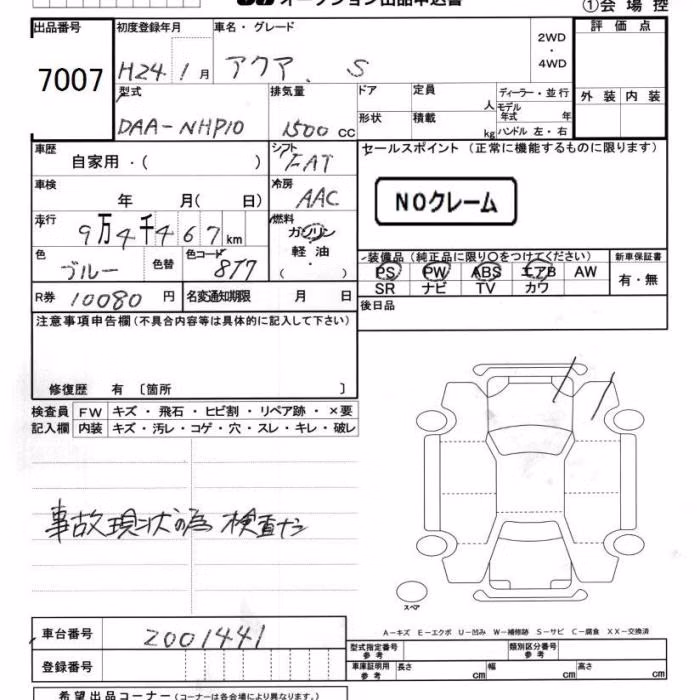 オークション出品申込書
①会場控
出品番号
7007
初度登録年月
H24年1月
車名・グレード
アクア S
2WD
・
4WD
評価点
外装 内装
型式
DAA-NHP10
排気量
1500 CC
ドア
形状
定員 人
積載 kg
ディーラー・並行
モデル年式 年
ハンドル 左・右
車歴
自家用・( )
シフト
FAT
セールスポイント (正常に機能するものに限ります)
NOクレーム
車検
年 月( 日)
冷房
AAC
走行
9万4千467km
燃料
ガソリン
軽油
( )
色
ブルー
色替
色コード
8T7
装備品 (純正品に限り○をつけてください)
PS PW ABS エアB AW
SR ナビ TV カワ
新車保証書
有・無
R券 10080 円
名変通知期限 月 日
後日品
注意事項申告欄(不具合内容等は具体的に記入して下さい)
修復歴 有 [箇所 ]
検査員
記入欄
FW キズ・飛石・ヒビ割・リペア跡・×要
内装 キズ・汚レ・コゲ・穴・スレ・キレ・破レ
事故現状の為 検査ナシ
スペア
車台番号 2001441
登録番号
A-キズ E-エクボ U-凹み W-補修跡 S-サビ C-腐食 XX-交換済
型式指定番号
参考
類別区分番号
参考
車庫証明用
参考
長さ cm
幅 cm
高さ cm
希望出品コーナー(コーナーは各会場により異なります。)